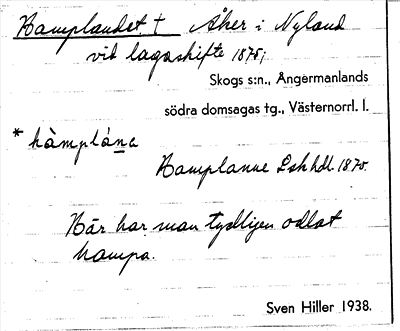 Hamplandet † Åker i Nyland
vid lagaskifte 1875;
Skogs s:n., Ångermanlands
södra domsagas tg., Västernorrl. l.
* hàmplána
Hamplanne Lskhdl. 1870.
Här har man tydligen odlat
hampa.
Sven Hiller 1938.